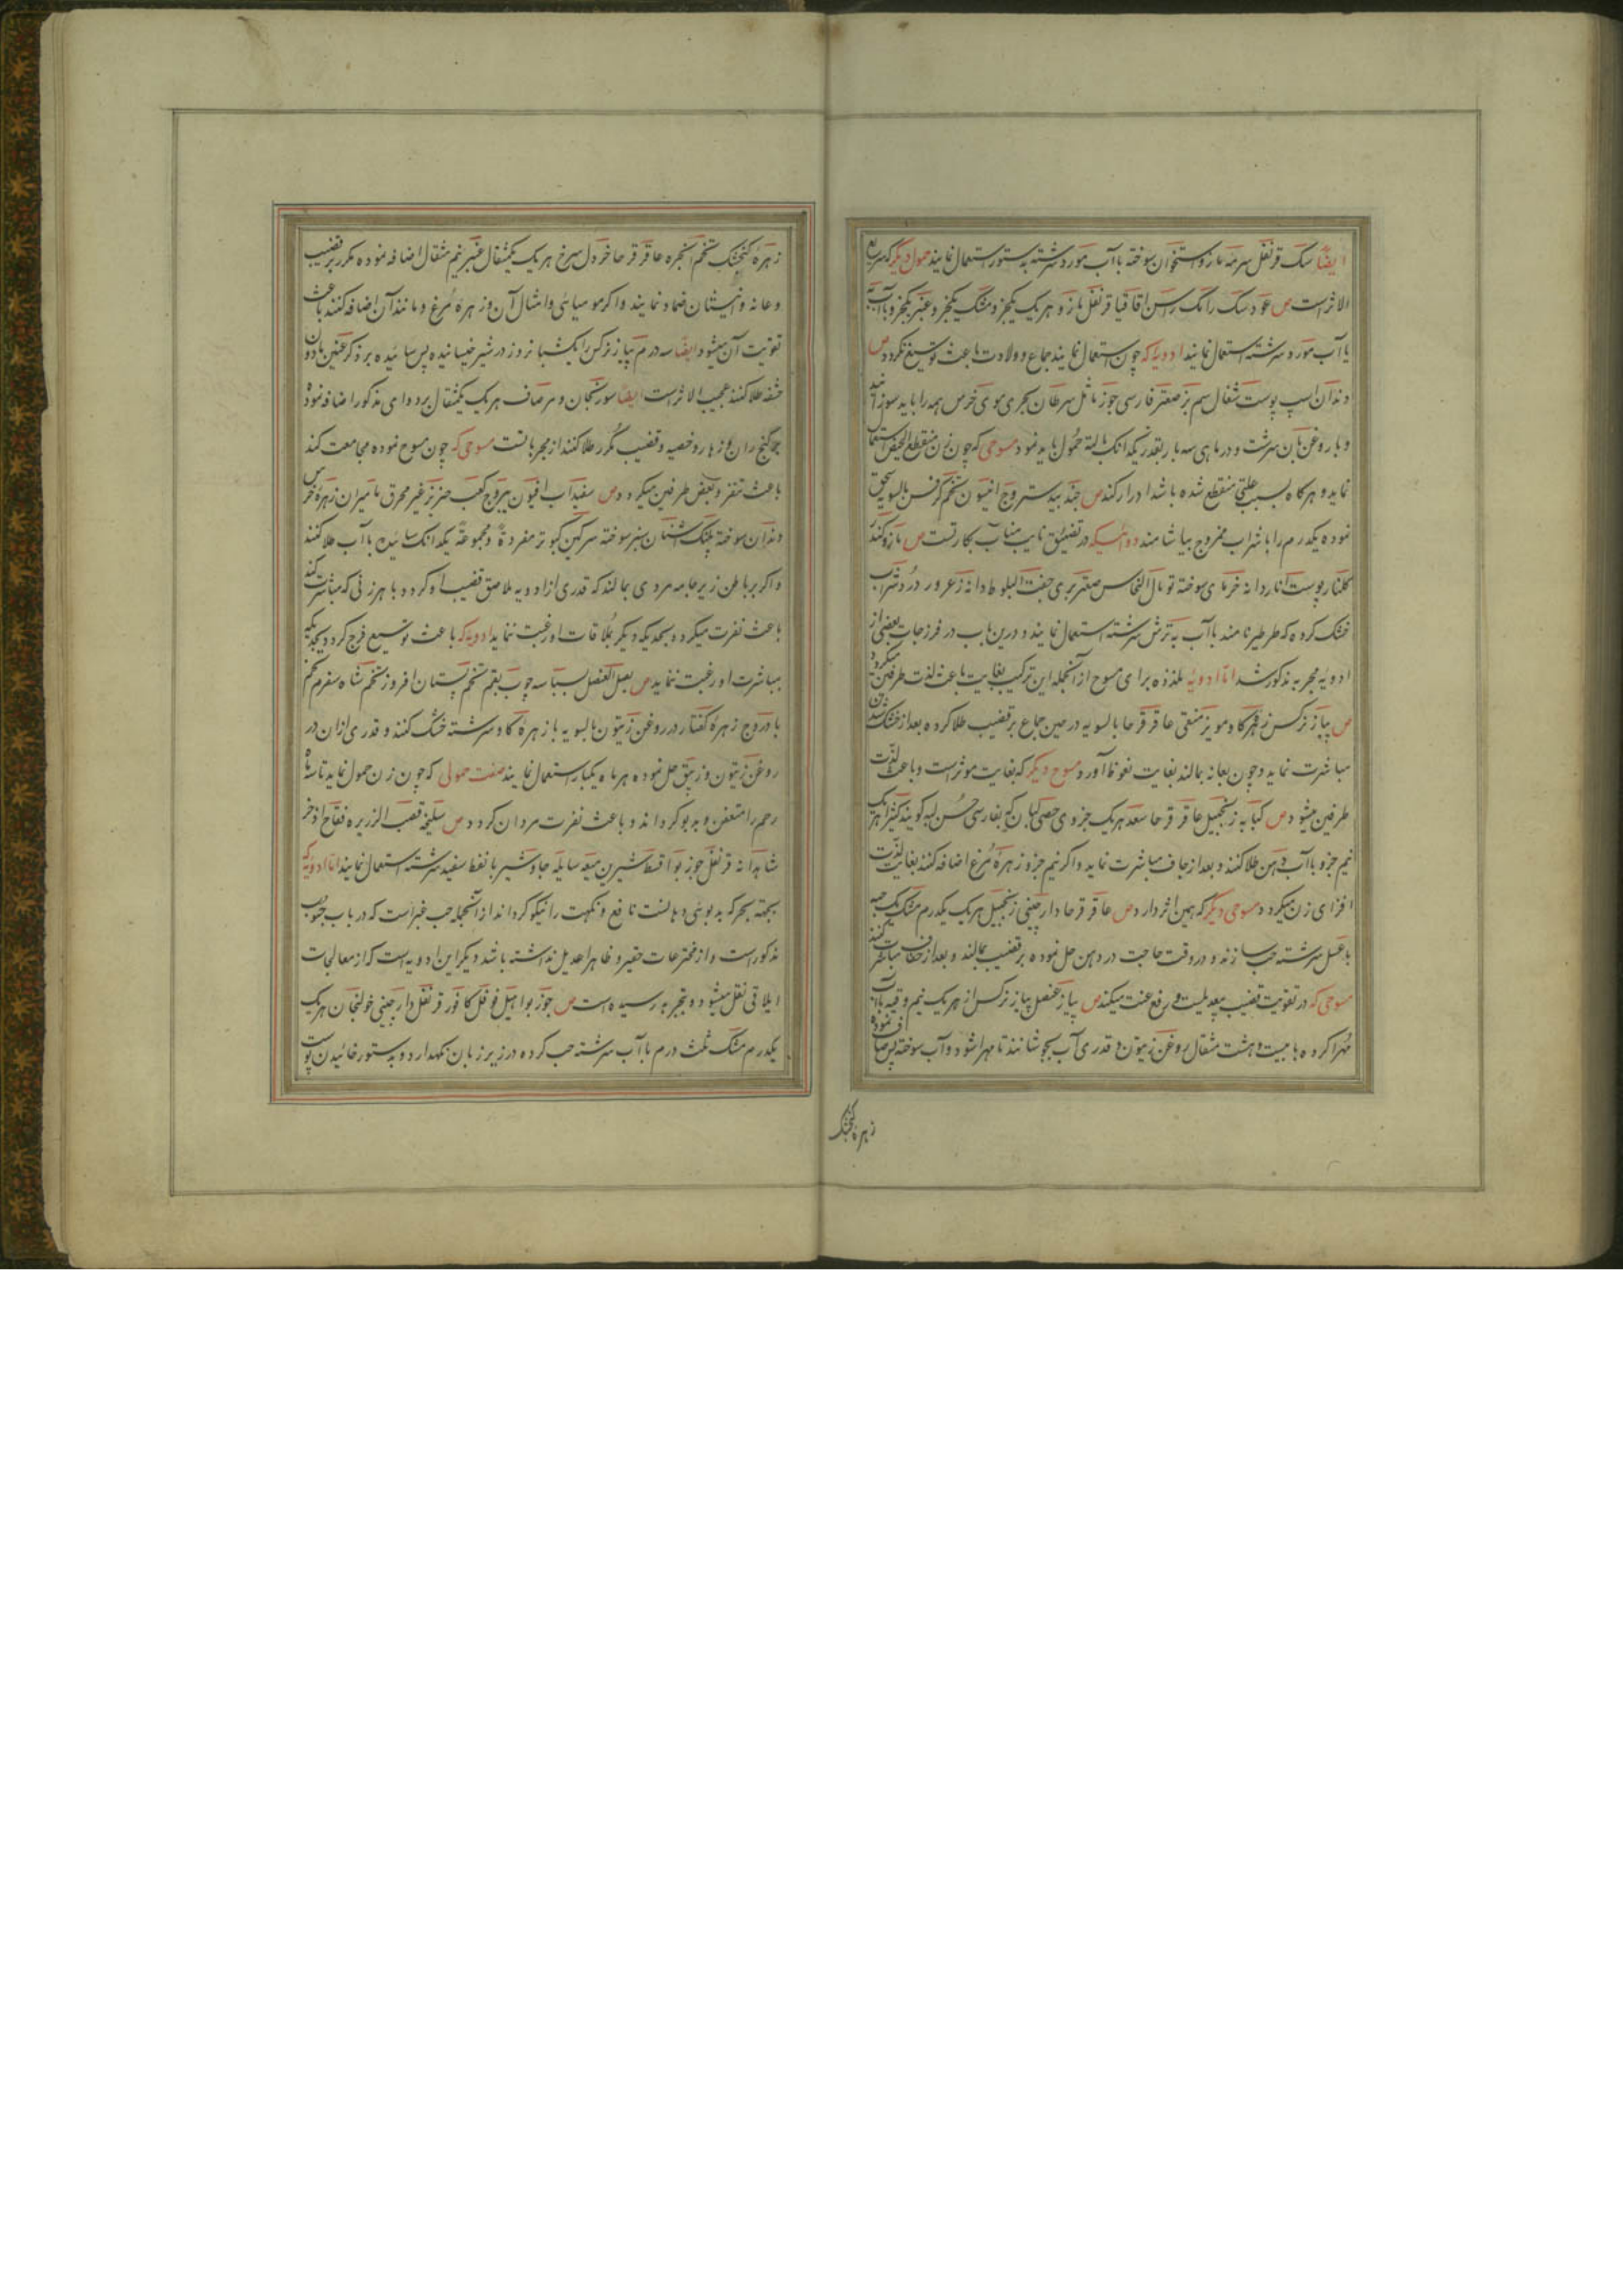 ایضاً سک قرنفل سرمه مازو استخوان سوخته باآب مورد سرشته بدستور استعمال نمایند حمول دیگر که سریع
الاثر است ص عود سک رامک راسن اقاقیا قرنفل مازو هر یک یکجزو مشک یکجزو عنبر یکجزو باآب به
یا آب مورد سرشته استعمال نمایند ادویه که چون استعمال نمایند جماع و ولادت باعث توسیع نکردد ص
دندان اسپ پوست شغال سم بز صعتر فارسی جوز ماثل سرطان بحری موی خرس همه را باید سوزانید
و با روغن بان سرشت و در ماهی سه بار بقدر یکدانک بالته حمول باید نمود مسوحی که چون زن منقطع الحیض استعمال
نماید و هرکاه بسبب علتی منقطع شده باشد ادرار کند ص جند بیدستر وج انیسون تخم کرفس بالسویه سحق
نموده یکدرم را با شراب ممزوج بیاشامند دوائیکه در تضییق نایب مناب بکارتست ص مازو کندر
کلنار پوست انار دانه خرمای سوخته توبال النحاس صعتر بری جفت البلوط دانه زعرور درد شراب
خشک کرده که طرطیر نامند باآب به ترش سرشته استعمال نمایند و درین باب در فرزجات بعضی از
ادویه مجربه مذکور شد اما ادویه ملذذه برای مسوح از آنجمله این ترکیب بغایت باعث لذت طرفین میکردد
ص پیاز نرکس زهره کاو مویز منقی عاقرقرحا بالسویه در حین جماع بر قضیب طلا کرده بعد از خشک شدن
مباشرت نماید و چون بعانه بمالند بغایت نعوظ آورد مسوح دیکر که بغایت موثر است و باعث لذت
طرفین میشود ص کبابه زنجبیل عاقرقرحا سعد هر یک جزوی حصی لبان که بفارسی حسن لبه کویند کتیرا هریک
نیم جزو باآب دهن طلا کنند و بعد از جفاف مباشرت نماید و اکر نیم جزو زهره مرغ اضافه کنند بغایت لذت
افزای زن میکردد مسوحی دیکر که همین اثر دارد ص عاقرقرحا دارچینی زنجبیل هر یک یکدرم مشک یک حبه
باعسل سرشته حب سازند و در وقت حاجت در دهن حل نموده بر قضیب بمالند و بعد از جفاف مباشرت کنند
مسوحی که در تقویت قضیب بیعدیلست و رفع عنت میکند ص پیاز عنصل پیاز نرکس از هر یک نیم وقیه باآب
مهرا کرده با بیست و هشت مثقال روغن زیتون و قدری آب بجوشانند تا مهرا شود و آب سوخته پس صاف نموده
زهره کنجشک
زهره کنجشک تخم انجره عاقرقرحا خردل سرخ هر یک یکمثقال عنبر نیم مثقال اضافه نموده مکرر بر قضیب
و عانه و انیستان ضماد نمایند و اکر مومیائی و امثال آن و زهره مرغ و مانند آن اضافه کنند باعث
تقویت آن میشود ایضاً سه درم پیاز نرکس را یکشبانروز در شیر خیسانیده پس سائیده بر ذکر عنین مادون
حشفه طلا کنند عجیب الاثر است ایضاً سورنجان و سرصاف هر یک یکمثقال بر دوای مذکور اضافه نموده
جهة کنج ران و زهار و خصیه و قضیب مکرر طلا کنند از مجرباتست مسوحی که چون مسوح نموده مجامعت کند
باعث تنفر و بغض طرفین میکردد ص سفیداب افیون یبروج کعب خنزیر غیر محرق مامیران زهره خرس
دندان سوخته پلنک اشنان سبز سوخته سرکین کبوتر مفردةً و مجموعةً یکدانک سائیده باآب طلا کنند
و اکر بر باطن زیر جامه مردی بمالند که قدری از ادویه ملاصق قضیب او کردد با هر زنی که مباشرت کند
باعث نفرت میکردد بحدیکه دیکر بملاقات او رغبت ننماید ادویه که باعث توسیع فرج کردد بحدیکه
بمباشرت او رغبت ننماید ص بصل العنصل بسباسه چوب بقم تخم بستان افروز تخم شاه سفرم تخم
بادروج زهره کفتار در روغن زیتون بالسویه با زهره کاو سرشته خشک کنند و قدری از ان در
روغن زیتون و زیبق حل نموده هر ماه یکبار استعمال نمایند صفت حمولی که چون زن حمول نماید تا سه ماه
رحم را متعفن و بدبو کرداند و باعث نفرت مردان کردد ص سلیخه قصب الزریره فقاح اذخر
شاهدانه قرنفل جوزبوا قسط شیرین میعه سایله جاوشیر بانفط سفید سرشته استعمال نمایند اما ادویه که
بجهة بخر که بدبوئی دهانست نافع و نکهت را نیکو کرداند از آنجمله حب عنبر است که در باب حبوب
مذکور است و از مخترعات حقیر و ظاهراً عدیل نداشته باشد و یکر این ادویه است که از معالجات
ایلاقی نقل میشود و بتجربه رسیده است ص جوزبوا هیل فوفل کافور قرنفل دارچینی خولنجان هر یک
یکدرم مشک ثلث درم باآب سرشته حب کرده در زیر زبان نکهدارد و بدستور خائیدن پوست